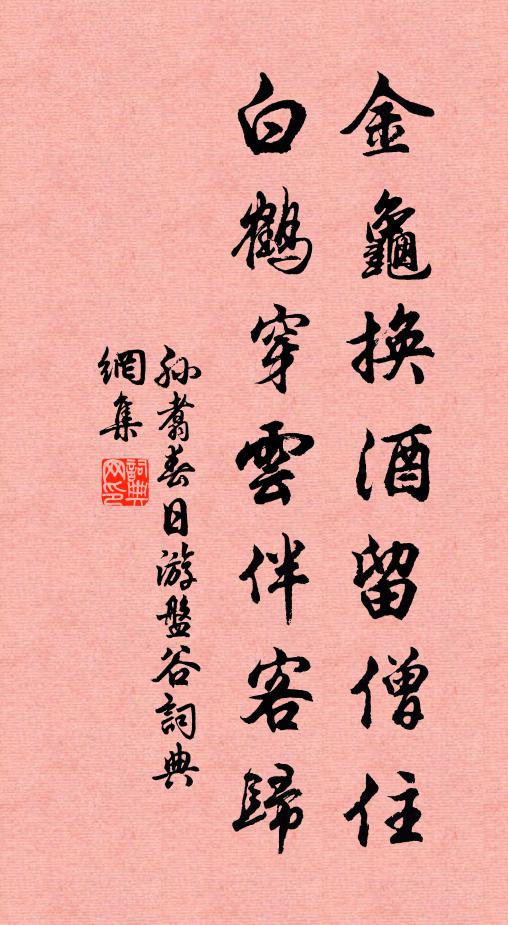 金龜換酒留僧住
白鶴穿雲伴客歸
孫翥春日游盤谷詞典
網集
詞典
网印